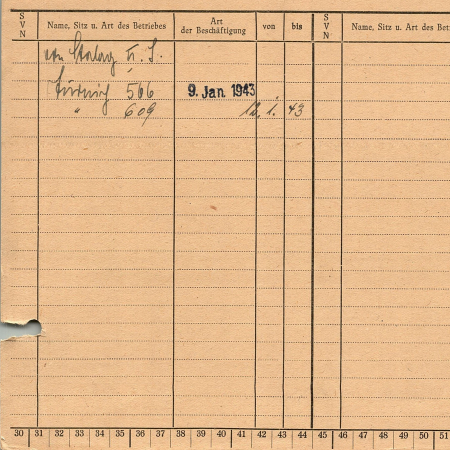 S V N Name, Sitz u. Art des Betriebes Art der Beschäftigung von bis S V N Name, Sitz u. Art des Bet
von Stalag
566 9. Jan. 1943
" 609 12. 1. 43
30 31 32 33 34 35 36 37 38 39 40 41 42 43 44 45 46 47 48 49 50 51